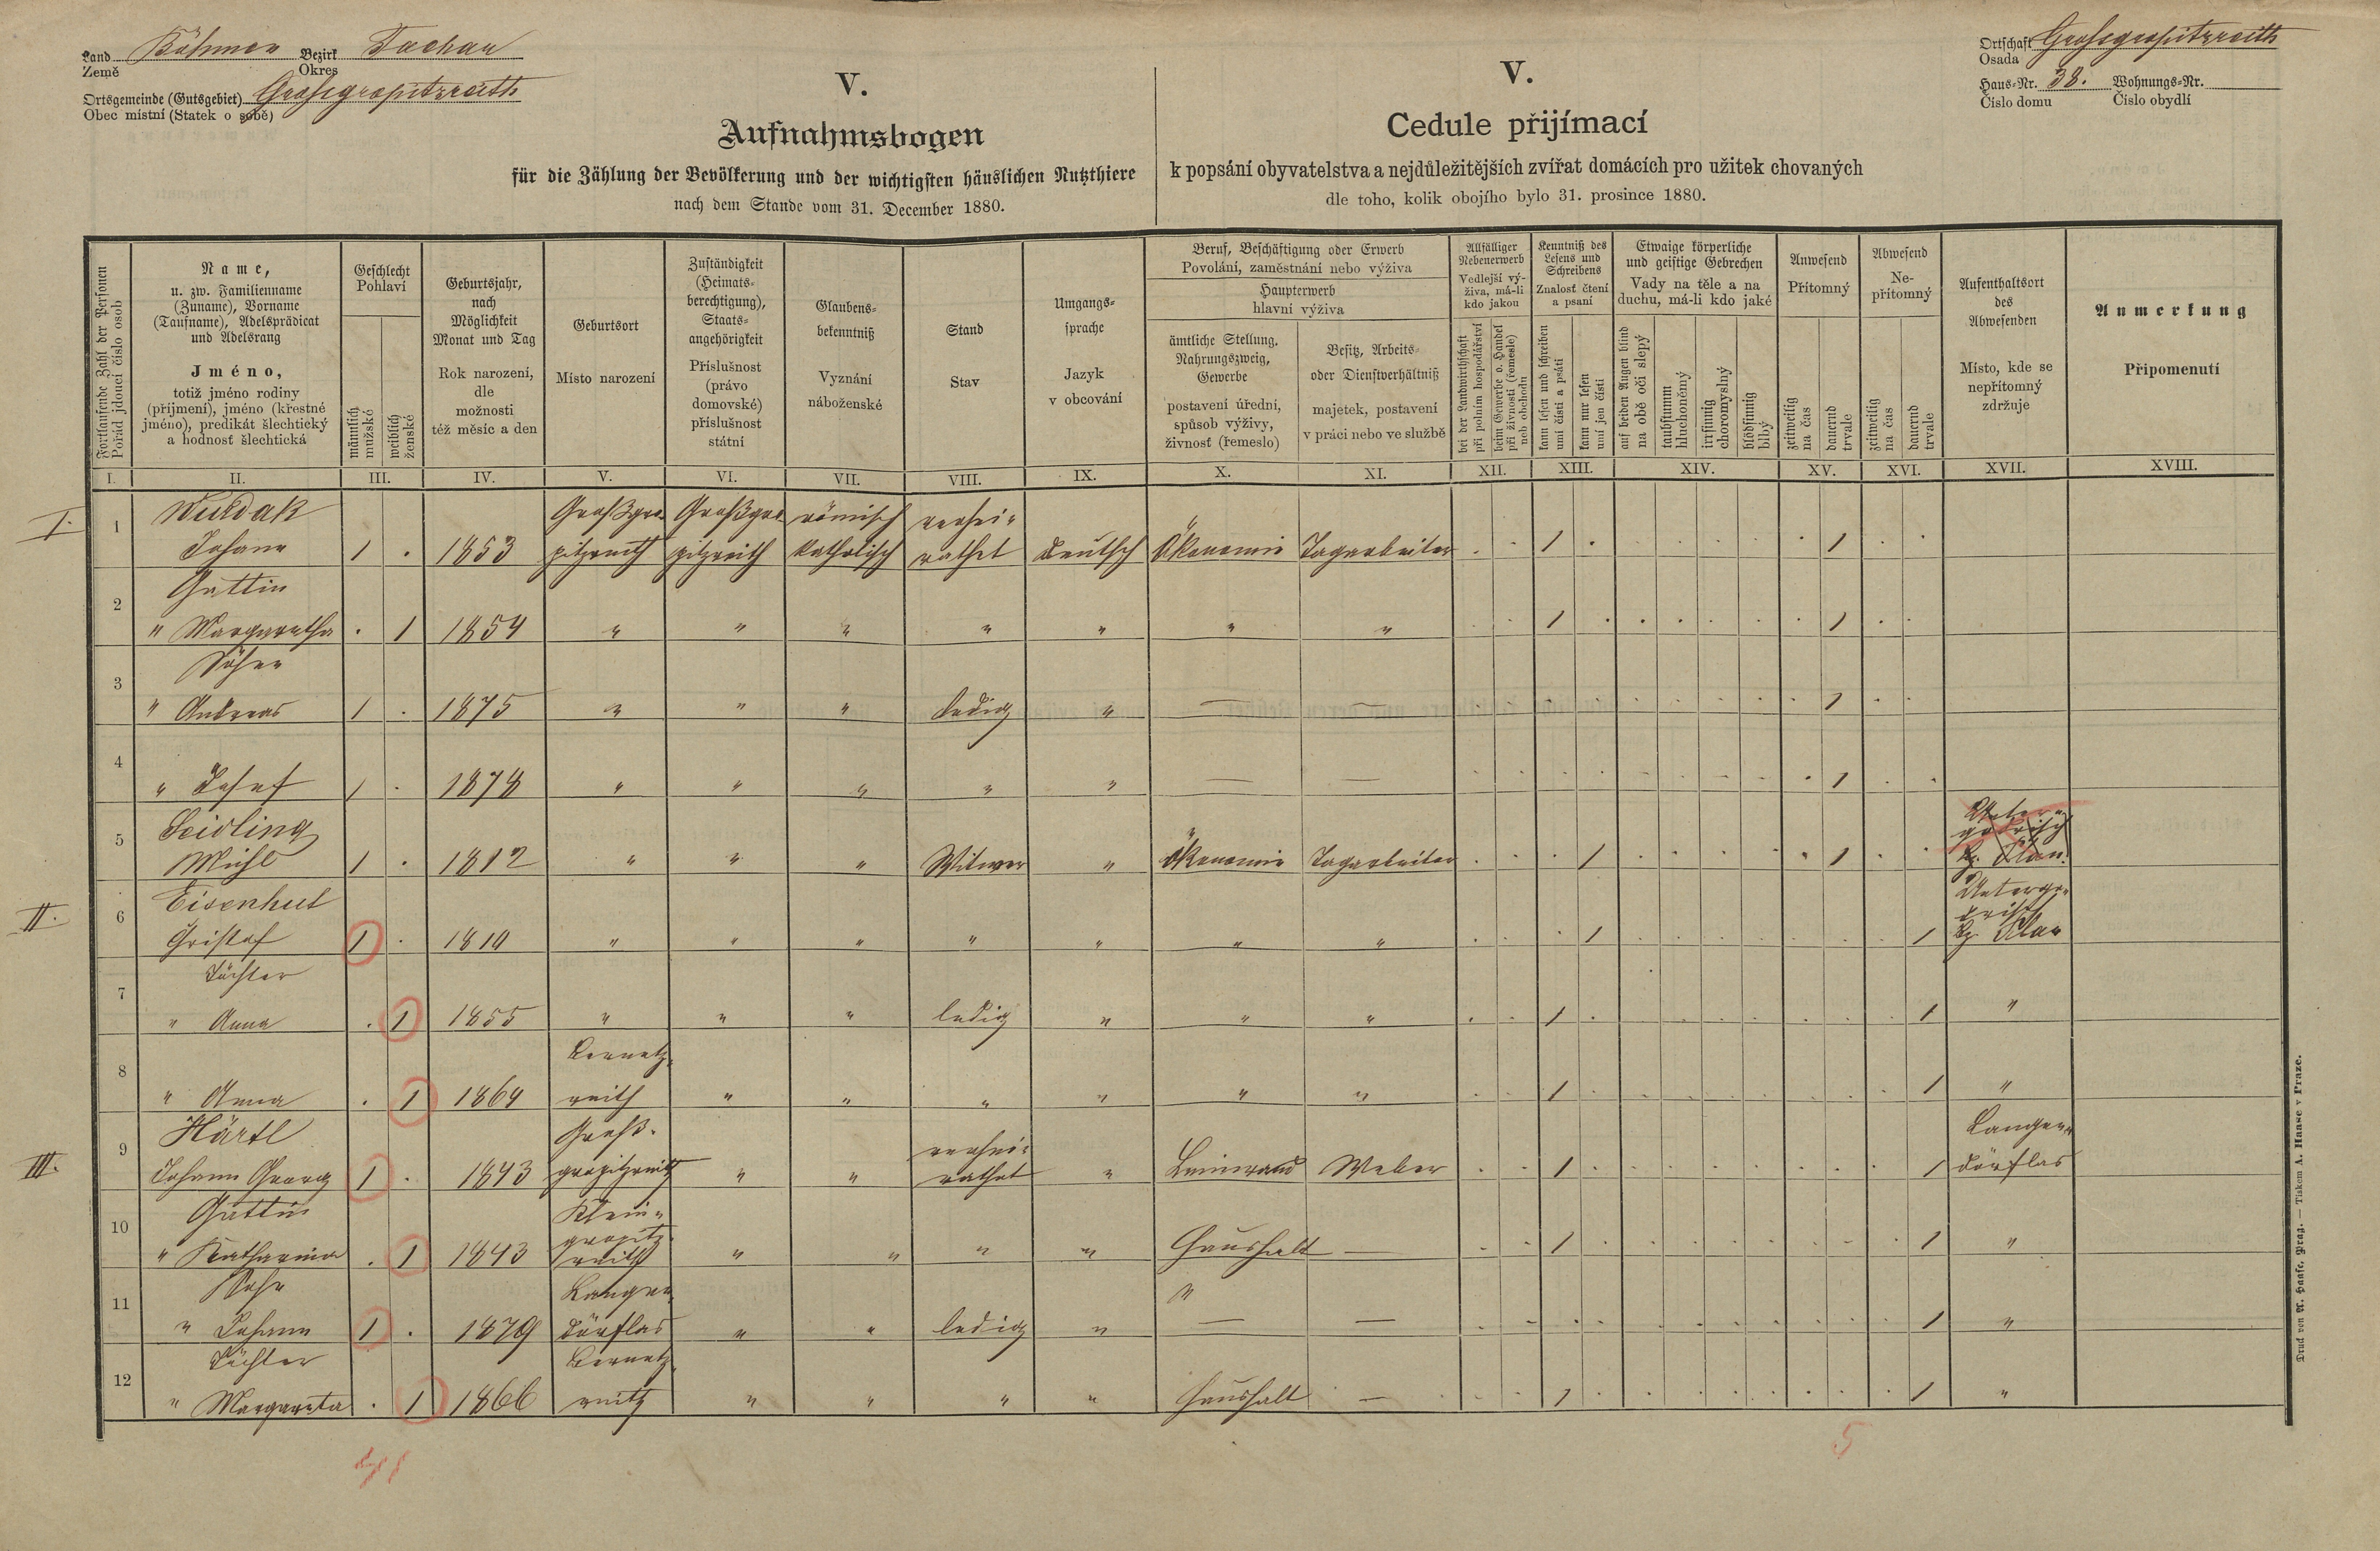 Land Böhmen Bezirk Tachau
Země Okres
Ortsgemeinde (Gutsgebiet) Grossgropitzreith
Obec místní (Statek o sobě)
Ortschaft Grossgropitzreith
Osada
Haus-Nr. 38. Wohnungs-Nr.
Číslo domu Číslo obydlí
V.
Aufnahmsbogen
für die Zählung der Bevölkerung und der wichtigsten häuslichen Nutzthiere
nach dem Stande vom 31. December 1880.
V.
Cedule přijímací
k popsání obyvatelstva a nejdůležitějších zvířat domácích pro užitek chovaných
dle toho, kolik obojího bylo 31. prosince 1880.
Fortlaufende Zahl der Personen
Pořád jdoucí číslo osob
Name,
u. zw. Familienname
(Zuname), Vorname
(Taufname), Adelsprädicat
und Adelsrang
Jméno,
totiž jméno rodiny
(příjmení), jméno (křestné
jméno), predikát šlechtický
a hodnosť šlechtická
Geschlecht
Pohlaví
männlich
mužské
weiblich
ženské
Geburtsjahr,
nach
Möglichkeit
Monat und Tag
Rok narození,
dle
možnosti
též měsíc a den
Geburtsort
Místo narození
Zuständigkeit
(Heimats-
berechtigung),
Staats-
angehörigkeit
Příslušnost
(právo
domovské)
příslušnost
státní
Glaubens-
bekenntniß
Vyznání
náboženské
Stand
Stav
Umgangs-
sprache
Jazyk
v obcování
Beruf, Beschäftigung oder Erwerb
Povolání, zaměstnání nebo výživa
Haupterwerb
hlavní výživa
ämtliche Stellung.
Nahrungszweig,
Gewerbe
postavení úřední,
spůsob výživy,
živnosť (řemeslo)
Besitz, Arbeits-
oder Dienstverhältniß
majetek, postavení
v práci nebo ve službě
Allfälliger
Nebenerwerb
Vedlejší vý-
živa, má-li
kdo jakou
bei der Landwirthschaft
při polním hospodářství
beim Gewerbe o. Handel
při živnosti (řemesle)
neb obchodu
Kenntniß des
Lesens und
Schreibens
Znalosť čtení
a psaní
kann lesen und schreiben
umí čísti a psáti
kann nur lesen
umí jen čísti
Etwaige körperliche
und geistige Gebrechen
Vady na těle a na
duchu, má-li kdo jaké
auf beiden Augen blind
na obě oči slepý
taubstumm
hluchoněmý
irrsinnig
choromyslný
blödsinnig
blbý
Anwesend
Přítomný
zeitweilig
na čas
dauernd
trvale
Abwesend
Ne-
přítomný
zeitweilig
na čas
dauernd
trvale
Aufenthaltsort
des
Abwesenden
Místo, kde se
nepřítomný
zdržuje
Anmerkung
Připomenutí
I. II. III. IV. V. VI. VII. VIII. IX. X. XI. XII. XIII. XIV. XV. XVI. XVII. XVIII.
I. 1 Wuldak Großgro- Großgro- römisch verhei-
Johann 1 . 1853 pitzreith pitzreith katholisch rathet deutsch Ökonomie Tagarbeiter . . 1 . . . . . . 1 . .
2 Gattin
" Margaretha . 1 1854 " " " " " " " . . 1 . . . . . . 1 . .
3 Söhne
" Andreas 1 . 1875 " " " ledig " — — . . . . . . . . . 1 . .
4 " Josef 1 . 1878 " " " " " — — . . . . . . . . . 1 . .
5 Seidling
Michl 1 . 1812 " " " Witwer " Ökonomie Tagarbeiter . . . 1 . . . . . 1 . . Bz. Plan.
II. 6 Eisenhut
Cristof 1 . 1810 " " " " " " " . . . 1 . . . . . . . 1 Untergo-
drisch
Bz. Plan
7 Töchter
" Anna . 1 1855 " " " ledig " " " . . 1 . . . . . . . . 1 "
8 Bernetz-
" Anna . 1 1864 reith " " " " " " . . 1 . . . . . . . . 1 "
III. 9 Härtl Groß- verhei- Langen-
Johann Georg 1 . 1843 gropitzreith " " rathet " Leinwand Weber . . 1 . . . . . . . . 1 dörflas
10 Gattin Klein-
gropitz-
" Katharina . 1 1843 reith " " " " Haushalt — . . 1 . . . . . . . . 1 "
11 Sohn Langen- "
" Johann 1 . 1879 dörflas " " ledig " — — . . . . . . . . . . . 1 "
12 Töchter Bernetz-
" Margareta . 1 1866 reith " " " " Haushalt — . . 1 . . . . . . . . 1 "
5
Druck von A. Haase, Prag. — Tiskem A. Haase v Praze.